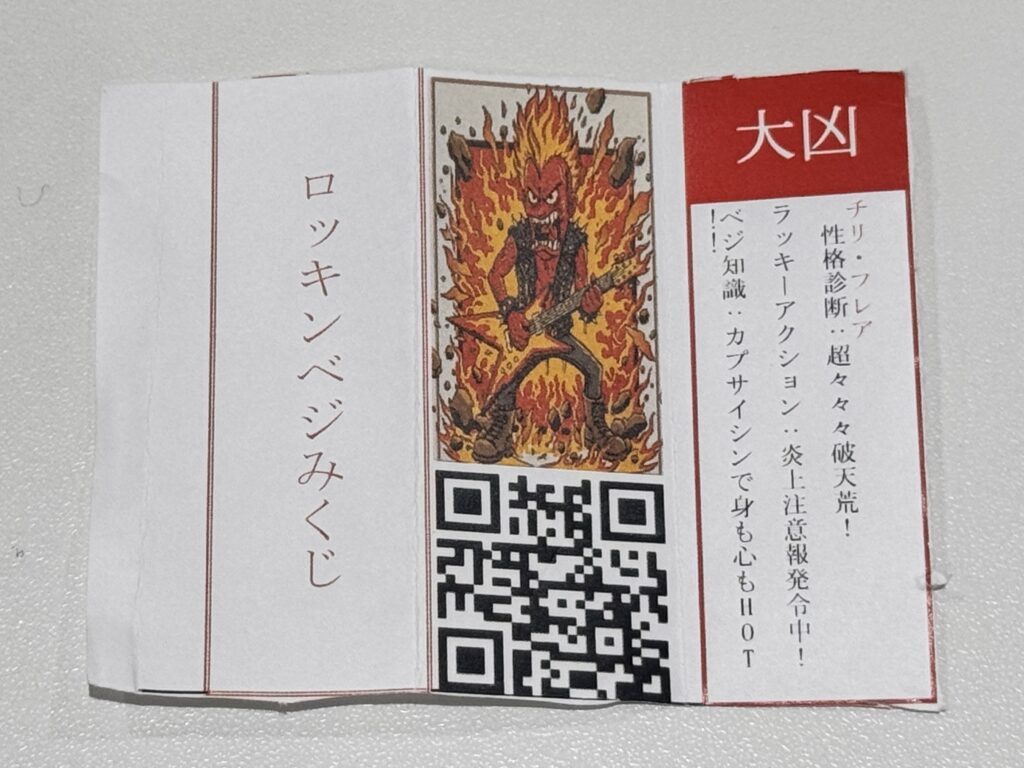 大凶
チリ・フレア
性格診断:超々々々破天荒!
ラッキーアクション:炎上注意報発令中!
ベジ知識:カプサイシンで身も心もHOT
!!
ロッキンベジみくじ